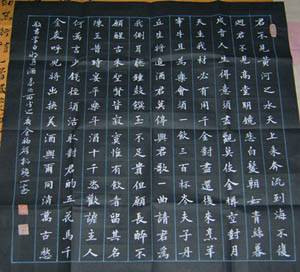 君不見黃河之水天上來奔流到海不復
迴君不見高堂明鏡悲白髮朝如青絲暮
成雪人生得意須盡歡莫使金樽空對月
天生我材必有用千金散盡還復來烹羊
宰牛且為樂會須一飲三百杯岑夫子丹
丘生將進酒君莫停與君歌一曲請君為
我側耳聽鐘鼓饌玉不足貴但願長醉不
願醒古來聖賢皆寂寞惟有飲者留其名
陳王昔時宴平樂斗酒十千恣歡謔主人
何為言少錢徑須沽取對君酌五花馬千
金裘呼兒將出換美酒與爾同消萬古愁
李白將進酒